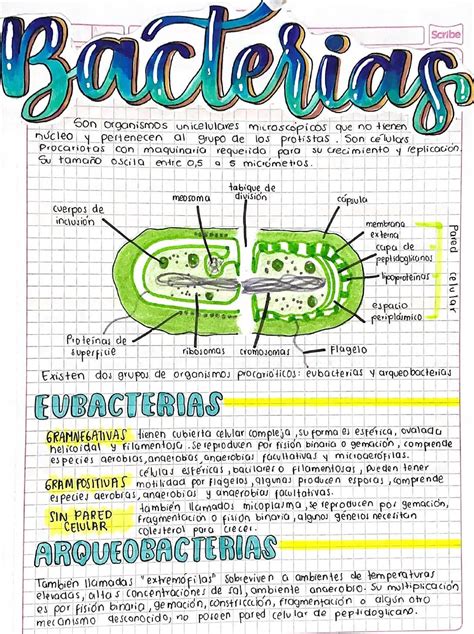 Scribe
Bacterias
Son organismos unicelulares microscópicos que no tienen
núcleo y pertenecen al grupo de los protistas. Son células
Procariotas con maquinaria requerida para su crecimiento y replicación.
Su tamaño oscila entre 0,5 a 5 micrómetros.
tabique de
división
mesosoma
cápsula
cuerpos de
inclusión
membrana
externa
capa de
peptidoglicanos
lipoproteínas
espacio
periplásmico
Pared celular
Proteínas de
superficie
ribosomas
cromosomas
Flagelo
Existen dos grupos de organismos procarióticos: eubacterias y arqueobacterias
EUBACTERIAS
GRAMNEGATIVAS tienen cubierta celular compleja, su forma es esférica, ovalada
helicoidal y filamentosa. Se reproducen por fisión binaria o gemación, comprende
especies aerobias, anaerobias, anaerobias facultativas y microaerófilas.
células esféricas, bacilares o filamentosas, pueden tener
GRAMPOSITIVAS motilidad por flagelos, algunas producen esporas, comprende
especies aerobias, anaerobias y anaerobias facultativas.
SIN PARED CELULAR también llamados micoplasma, se reproducen por gemación,
fragmentación o fisión binaria, algunos géneros necesitan
colesterol para crecer.
ARQUEOBACTERIAS
También llamadas "extremófilas" sobreviven a ambientes de temperaturas
elevadas, altas concentraciones de sal, ambiente anaerobio. Su multiplicación
es por fisión binaria, gemación, constricción, fragmentación o algún otro
mecanismo desconocido, no poseen pared celular de peptidoglicano.